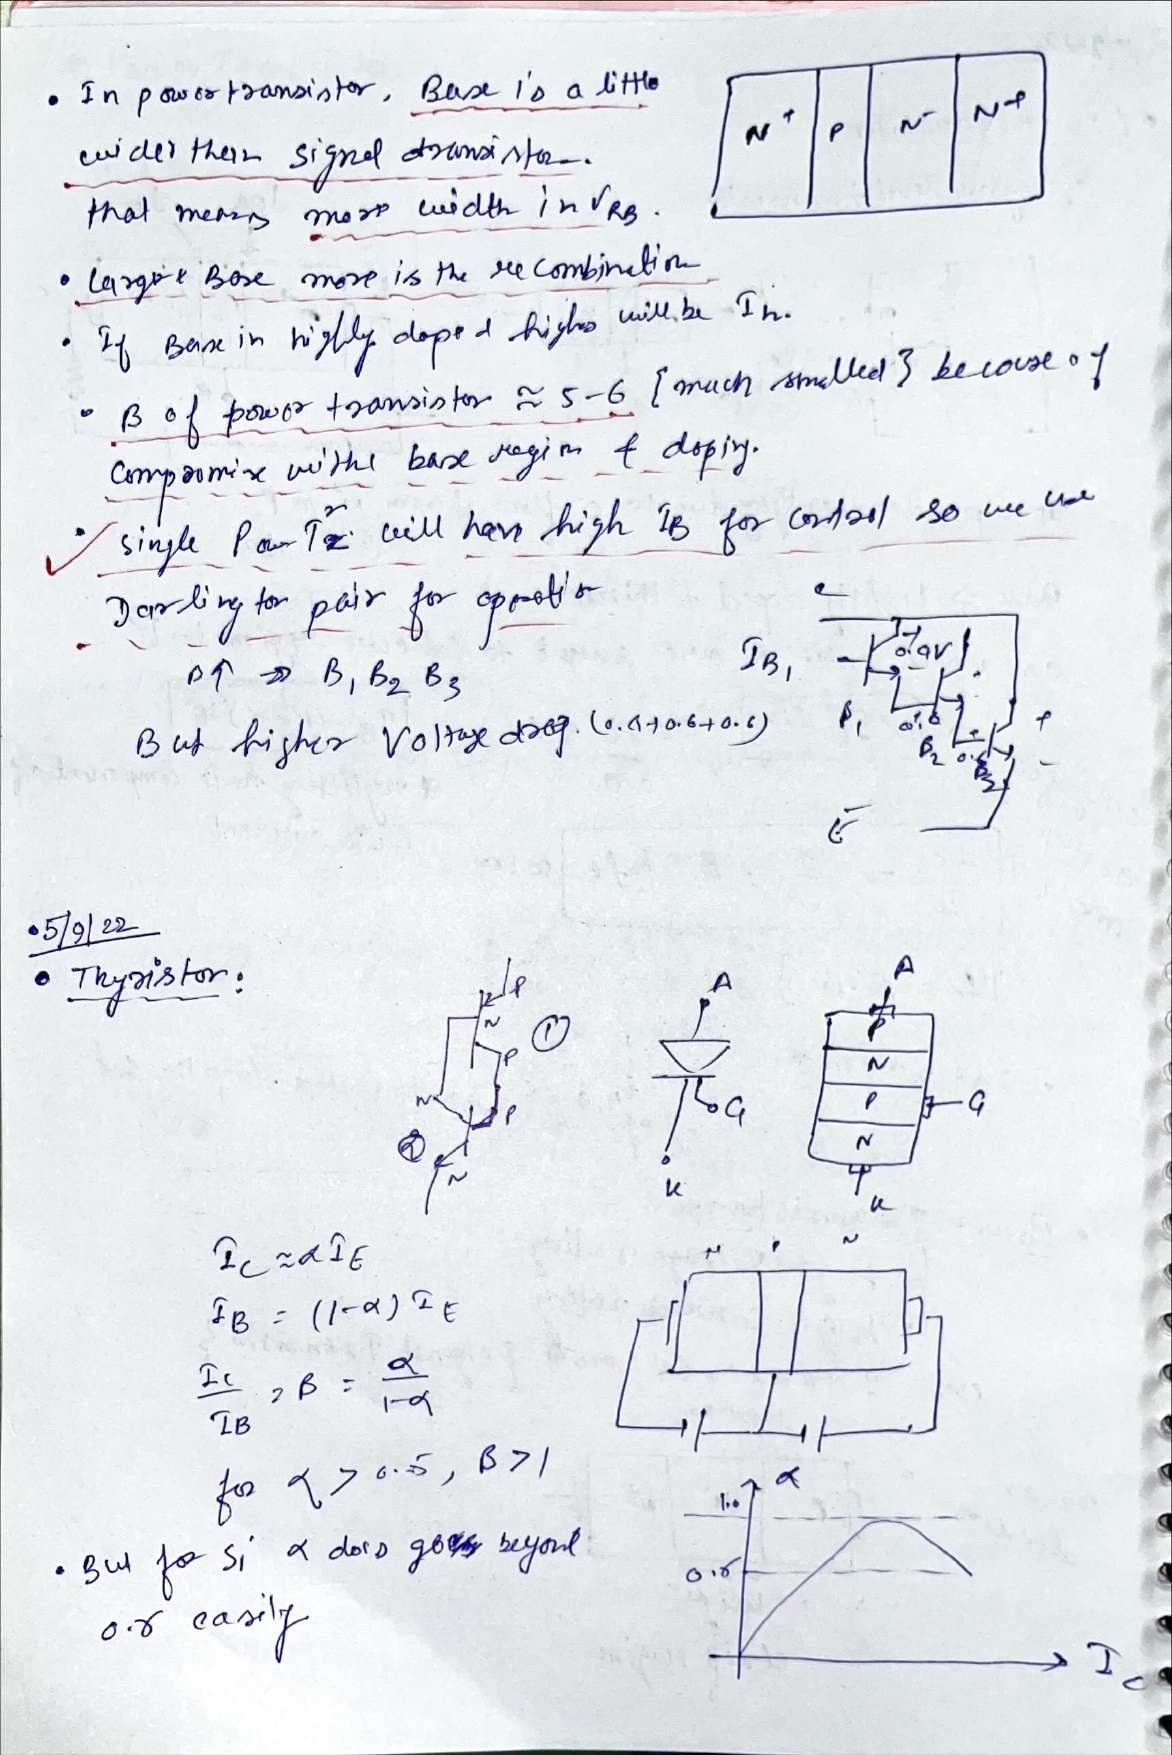 • In power transistor, Base is a little
wider then signal transistor.
that means more width in VRB.
N+ P N- N+P
• Larger Base more is the recombination
• If Base in highly doped higho will be In.
• B of power transistor ≈ 5-6 {much smalled} because of
compromise withe base region & doping.
• single Pow Tr will have high IB for control so we use
Darlington pair for operatio
β↑ ⇒ B1 B2 B3
But higher Voltage drop. (0.9+0.6+0.6)
C
IB1
0.9V
β1 0.6
B2 0.6
B3
+
-
E
• 5/9/22
• Thyristor:
P
N
P
①
N
P
②
N
A
G
K
A
P
N
P
N
G
K
IC ≈ αIE
IB = (1-α) IE
IC/IB , B = α/1-α
for α > 0.5, B > 1
N P N
α
1.0
0.5
IC
• But for Si α does goes beyond
0.5 easily